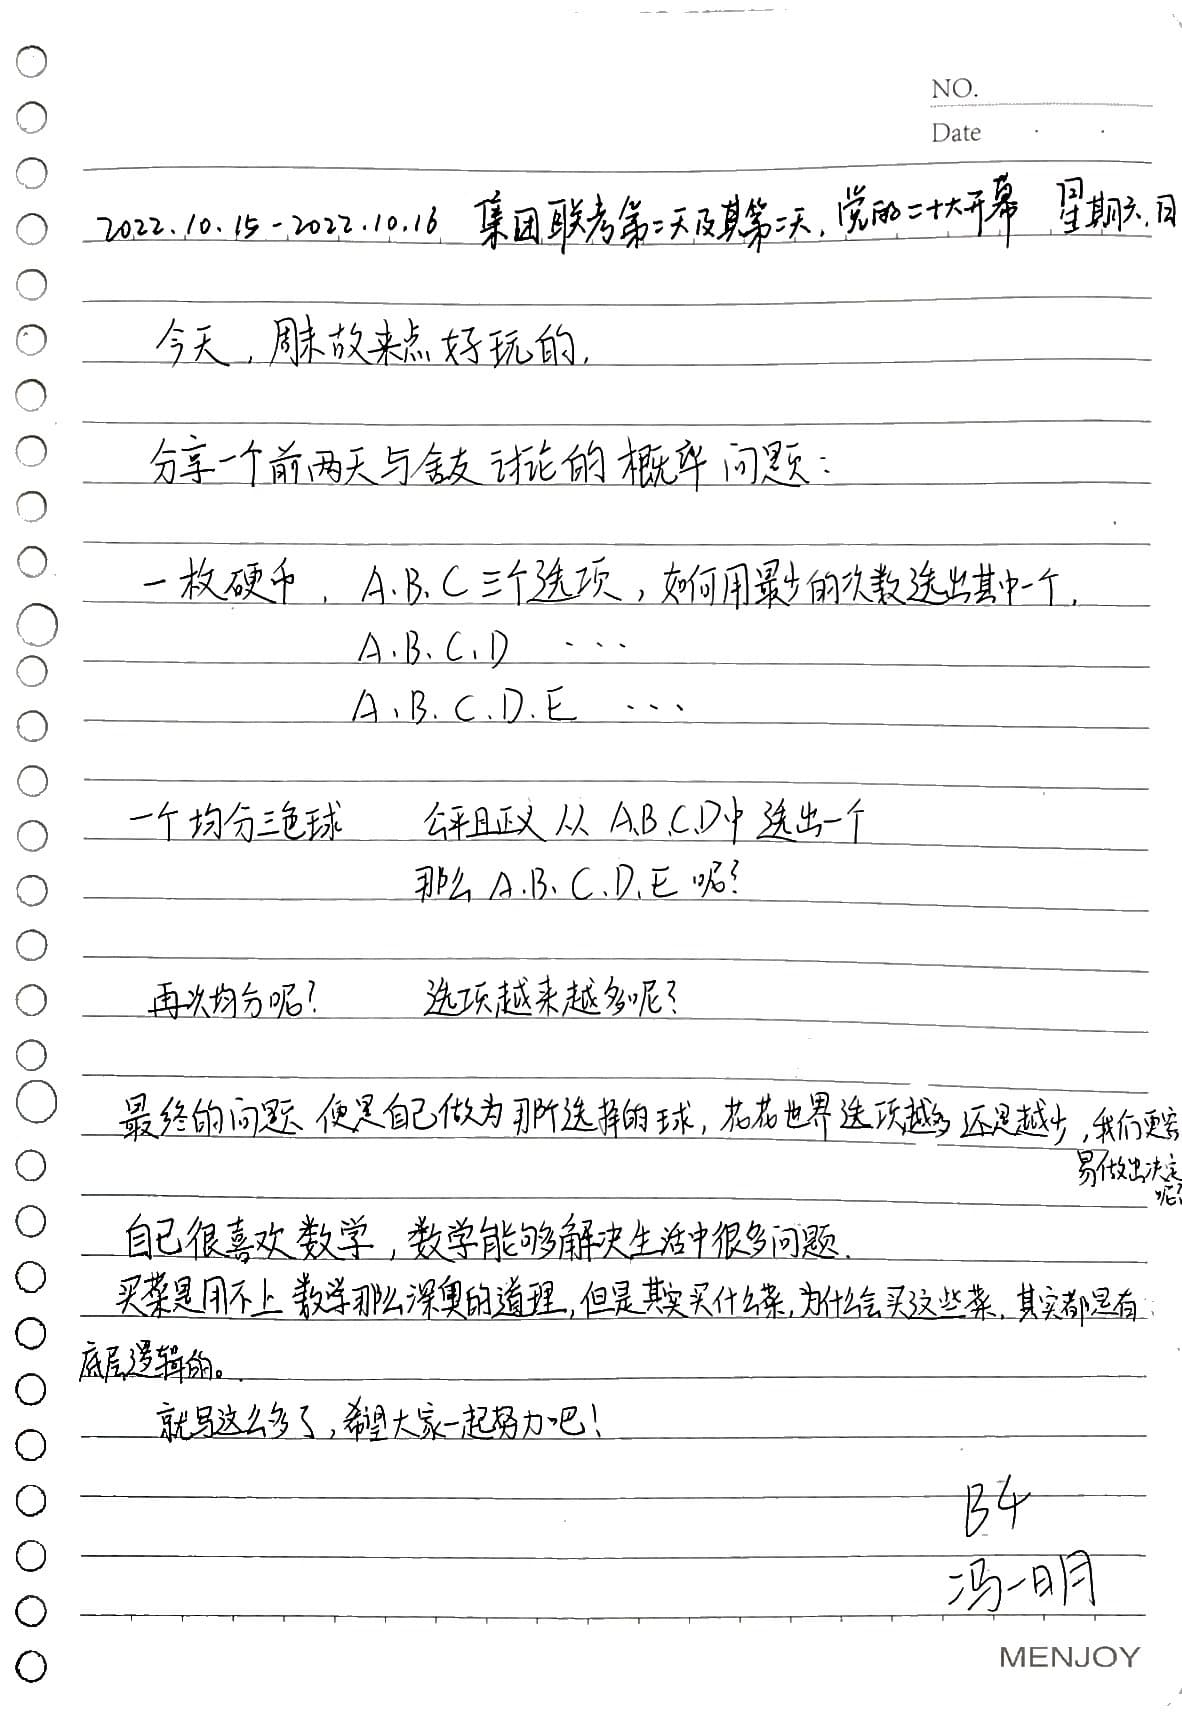 NO.
Date
2022.10.15-2022.10.16 集团联考第二天及其第二天,党的二十大开幕 星期六.日
今天,周末故来点好玩的.
分享一个前两天与舍友讨论的概率问题:
一枚硬币, A.B.C三个选项,如何用最少的次数选出其中一个.
A.B.C.D ...
A.B.C.D.E ...
一个均分三色球 公平且正义从A.B.C.D中选出一个
那么A.B.C.D.E呢?
再次均分呢? 选项越来越多呢?
最终的问题便是自己做为那所选择的球,花花世界选项越多还是越少,我们更容
易做出决定
呢?
自己很喜欢数学,数学能够解决生活中很多问题.
买菜是用不上数学那么深奥的道理,但是其实买什么菜,为什么会买这些菜.其实都是有
底层逻辑的。
就写这么多了,希望大家一起努力吧!
B4
冯一明
MENJOY